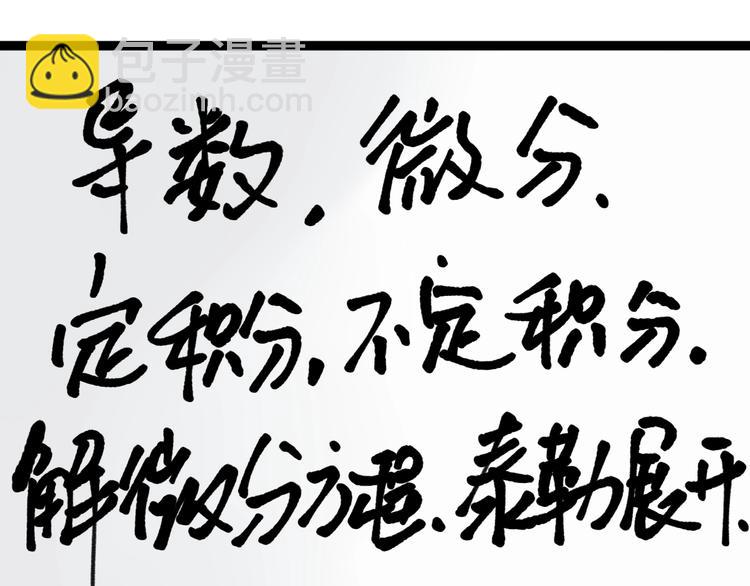 包子漫畫
baozimh.com
导数，微分、
定积分，不定积分.
解微分方程、泰勒展开、